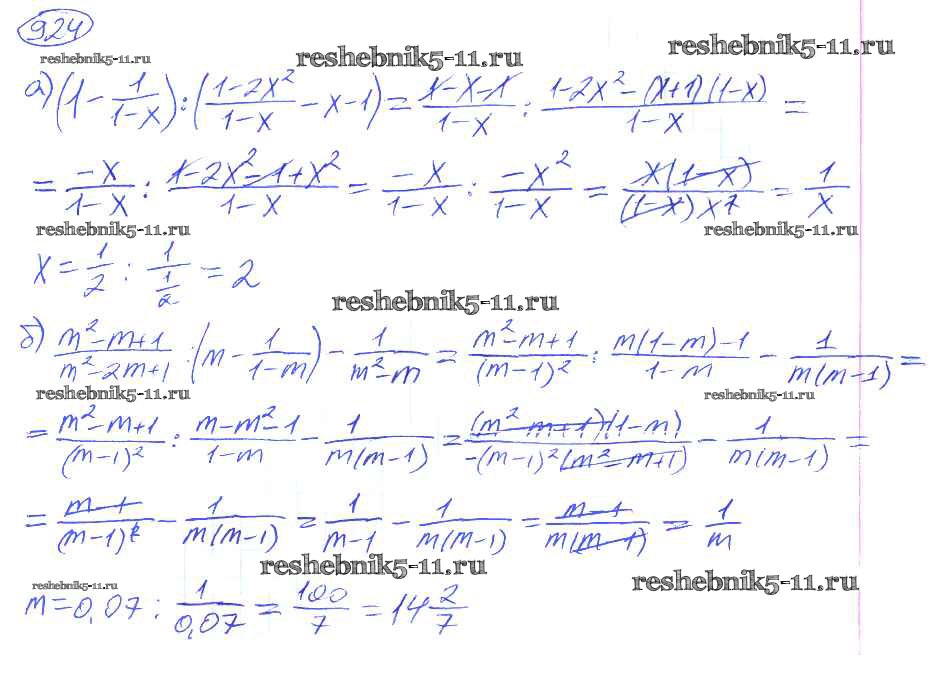 924
reshebnik5-11.ru reshebnik5-11.ru reshebnik5-11.ru
а) (1 - 1/(1-x)) : ((1-2x²)/(1-x) - x - 1) = (1-x-1)/(1-x) : (1-2x²-(x+1)(1-x))/(1-x) =
= (-x)/(1-x) : (1-2x²-1+x²)/(1-x) = (-x)/(1-x) : (-x²)/(1-x) = (x(1-x))/((1-x)x²) = 1/x
reshebnik5-11.ru reshebnik5-11.ru
x = 1/2 : 1/(1/2) = 2
reshebnik5-11.ru
б) (m²-m+1)/(m²-2m+1) : (m - 1/(1-m)) - 1/(m²-m) = (m²-m+1)/(m-1)² : (m(1-m)-1)/(1-m) - 1/(m(m-1)) =
reshebnik5-11.ru reshebnik5-11.ru
= (m²-m+1)/(m-1)² : (m-m²-1)/(1-m) - 1/(m(m-1)) = ((m²-m+1)(1-m))/(-(m-1)²(m²-m+1)) - 1/(m(m-1)) =
= (m-1)/(m-1)² - 1/(m(m-1)) = 1/(m-1) - 1/(m(m-1)) = (m-1)/(m(m-1)) = 1/m
reshebnik5-11.ru reshebnik5-11.ru reshebnik5-11.ru
m = 0,07 : 1/0,07 = 100/7 = 14 2/7